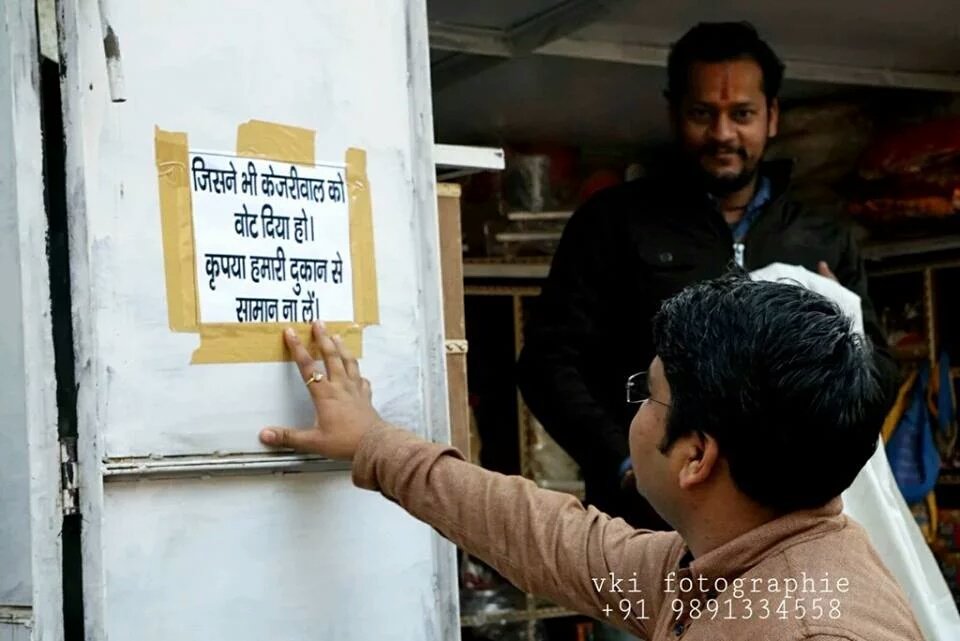 जिसने भी केजरीवाल को
वोट दिया हो।
कृपया हमारी दुकान से
सामान ना लें।
vki fotographie
+91 9891334558